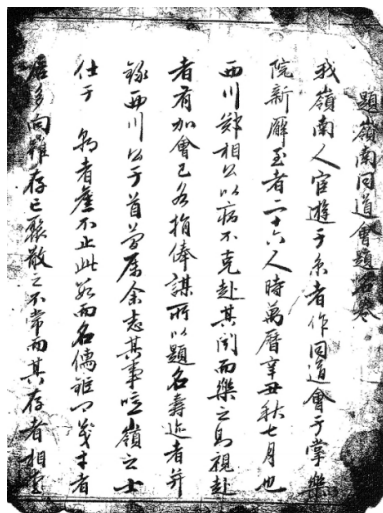 題嶺南同道會題名卷
我嶺南人宦遊于京者作同道會于掌樂
院新廨至者二十六人時萬曆辛丑秋七月也
西川鄭相公以病不克赴其聞而樂之與視赴
者有加會已各捐俸謀所以題名壽迹者并
錄西川公于首等屬余志其事噫嶺之士
仕于 朝者奚不止此而名儒
居多向 存亡聚散之不常而其存者相